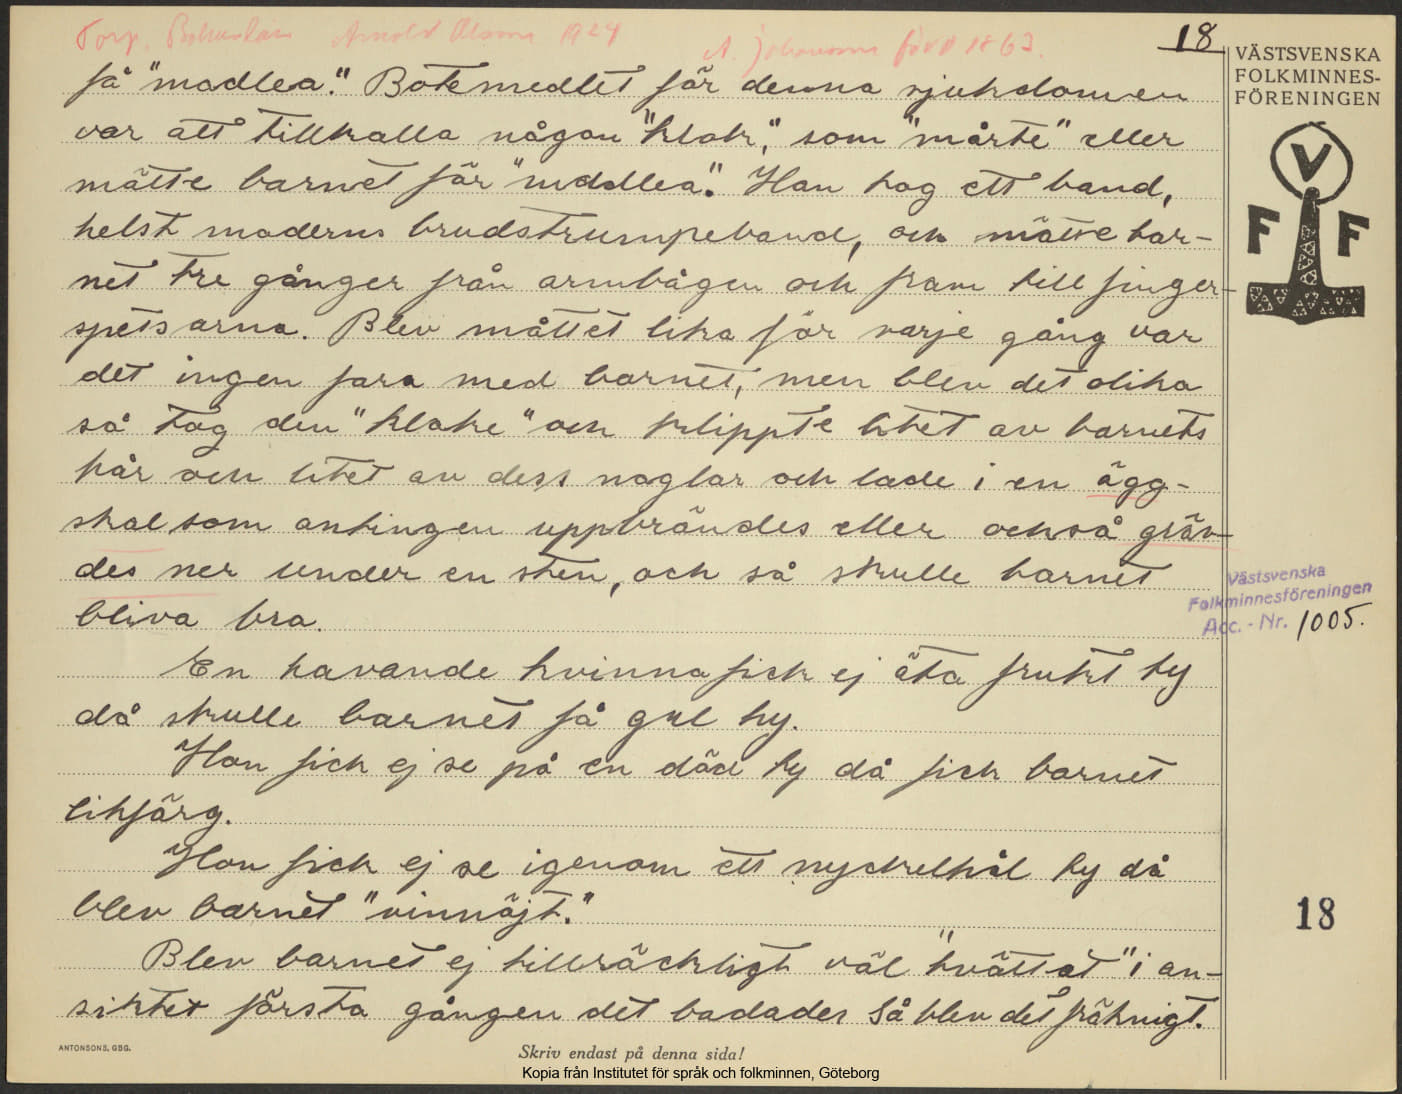 Torp. Bohuslän Arnold Olsson 1924
A. Johansson född 1863.
18
få "madlea". Botemedlet för denna sjukdomen
var att tillkalla någon "klok", som "mårte" eller
mätte barnet för "madlea". Han tog ett band,
helst moderns brudstrumpeband, och mätte bar-
net tre gånger från armbågen och fram till finger-
spetsarna. Blev måttet lika för varje gång var
det ingen fara med barnet, men blev det olika
så tog den "kloke" och klippte litet av barnets
hår och litet av dess naglar och lade i en ägg-
skal som antingen uppbrändes eller också gräv-
des ner under en sten, och så skulle barnet
bliva bra.
En havande kvinna fick ej äta frukt ty
då skulle barnet få gul hy.
Hon fick ej se på en död ty då fick barnet
likfärg.
Hon fick ej se igenom ett nyckelhål ty då
blev barnet "vinnöjt."
Blev barnet ej tillräckligt väl "tvättat" i an-
siktet första gången det badades så blev det fräknigt.
VÄSTSVENSKA
FOLKMINNES-
FÖRENINGEN
V
F F
Västsvenska
Folkminnesföreningen
Acc. - Nr. 1005.
18
ANTONSONS, GBG.
Skriv endast på denna sida!
Kopia från Institutet för språk och folkminnen, Göteborg